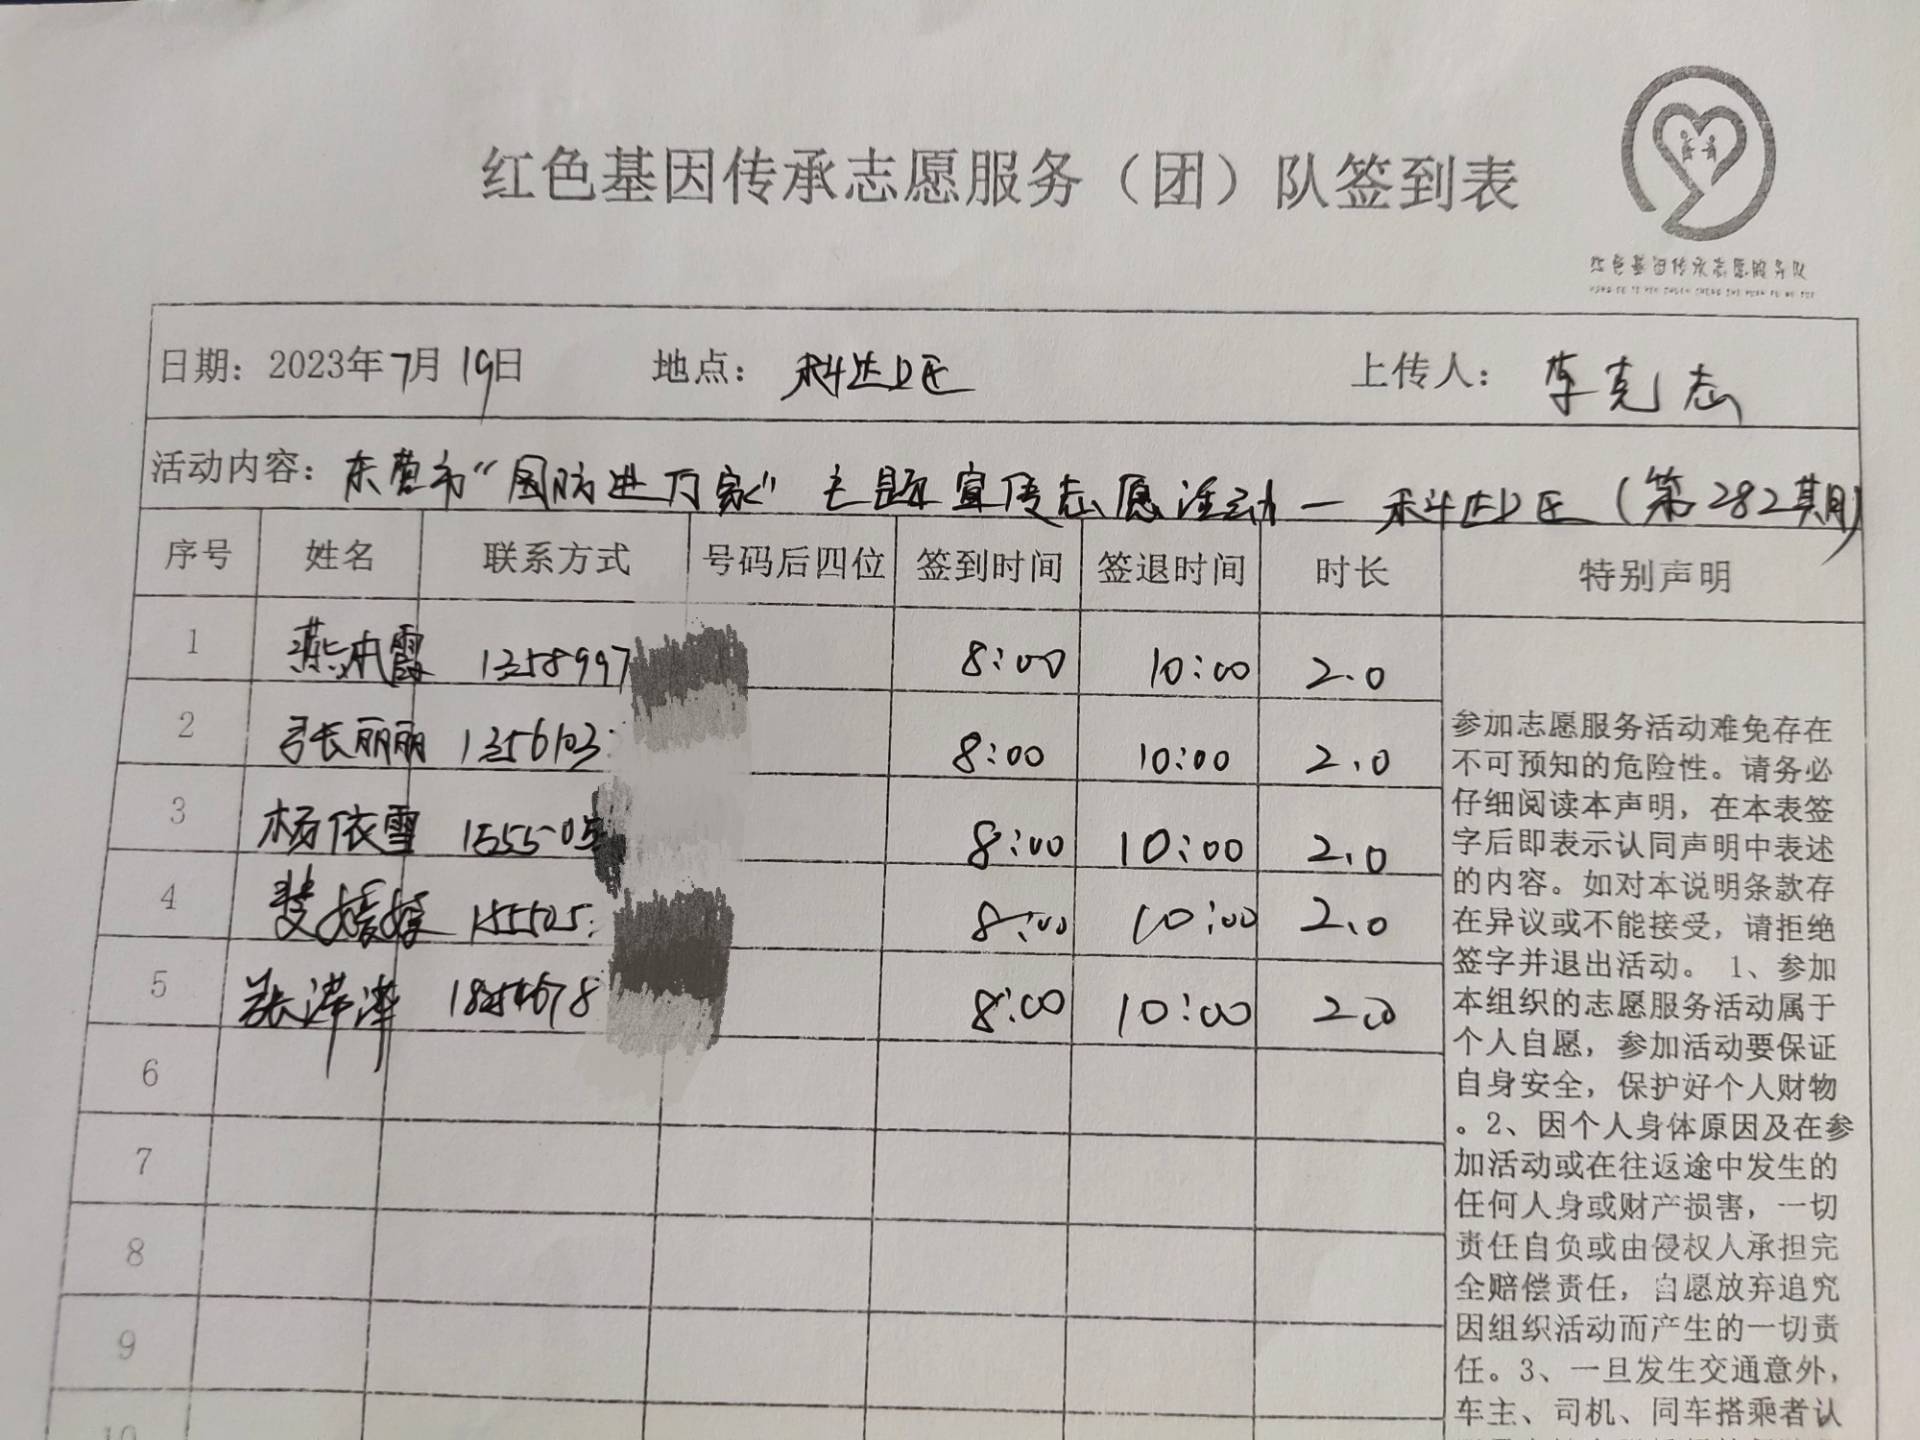 红色基因传承志愿服务（团）队签到表
红色基因传承志愿服务队
日期：2023年7月19日 地点：科达小区 上传人：李克志
活动内容：东营市“国防进万家”主题宣传志愿活动—科达小区（第282期）
序号 姓名 联系方式 号码后四位 签到时间 签退时间 时长 特别声明
1 燕本霞 1358997 8:00 10:00 2.0
2 张丽丽 1356103 8:00 10:00 2.0
3 杨依雪 1555505 8:00 10:00 2.0
4 155505 8:00 10:00 2.0
5 张萍萍 8:00 10:00 2.0
6
7
8
9
10
参加志愿服务活动难免存在
不可预知的危险性。请务必
仔细阅读本声明，在本表签
字后即表示认同声明中表述
的内容。如对本说明条款存
在异议或不能接受，请拒绝
签字并退出活动。 1、参加
本组织的志愿服务活动属于
个人自愿，参加活动要保证
自身安全，保护好个人财物
。2、因个人身体原因及在参
加活动或在往返途中发生的
任何人身或财产损害，一切
责任自负或由侵权人承担完
全赔偿责任，自愿放弃追究
因组织活动而产生的一切责
任。3、一旦发生交通意外，
车主、司机、同车搭乘者认